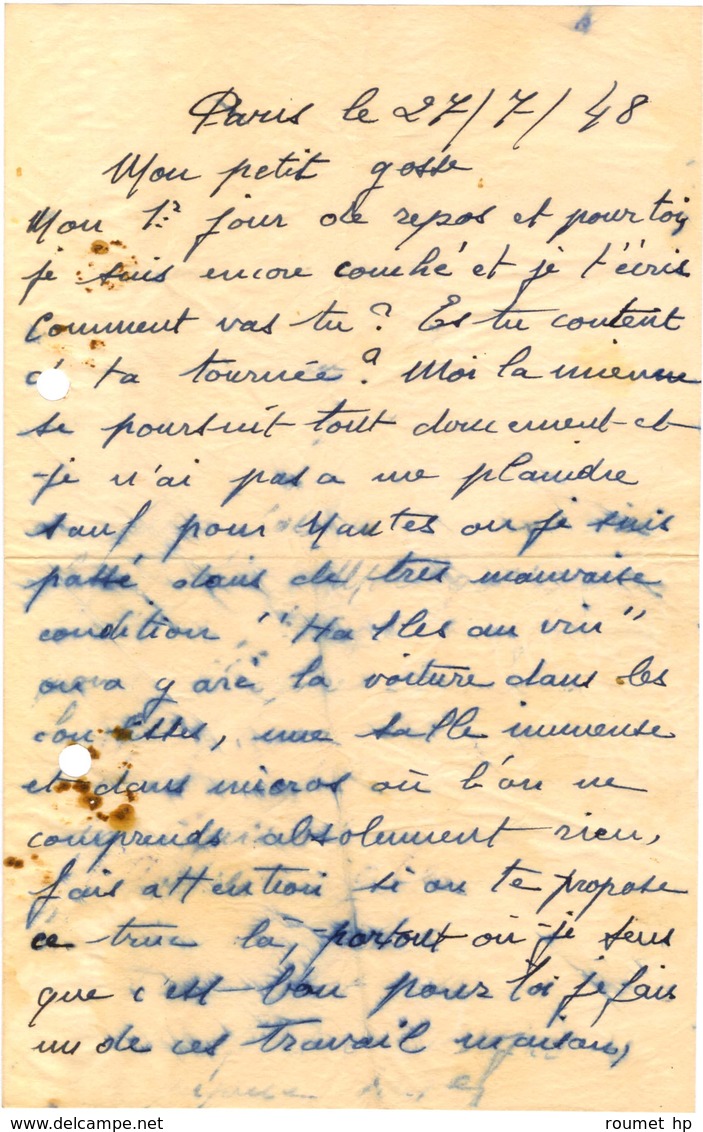 Paris le 27/7/48
Mon petit gosse
Mon 1er jour de repos et pour toi,
je suis encore couché et je t'écris
Comment vas tu? Es tu content
de ta tournée? Moi la mienne
se poursuit tout doucement et
je n'ai pas a me plaindre
sauf pour Nantes ou je suis
passé dans de tres mauvaise
condition "Halles au vin"
on a garé la voiture dans les
coulisses, une salle immense
et dans micros où l'on ne
comprends absolument rien,
fais attention si on te propose
ce truc là, partout où je sens
que c'est bon pour toi je fais
un de ces travail maison,
roumet hp